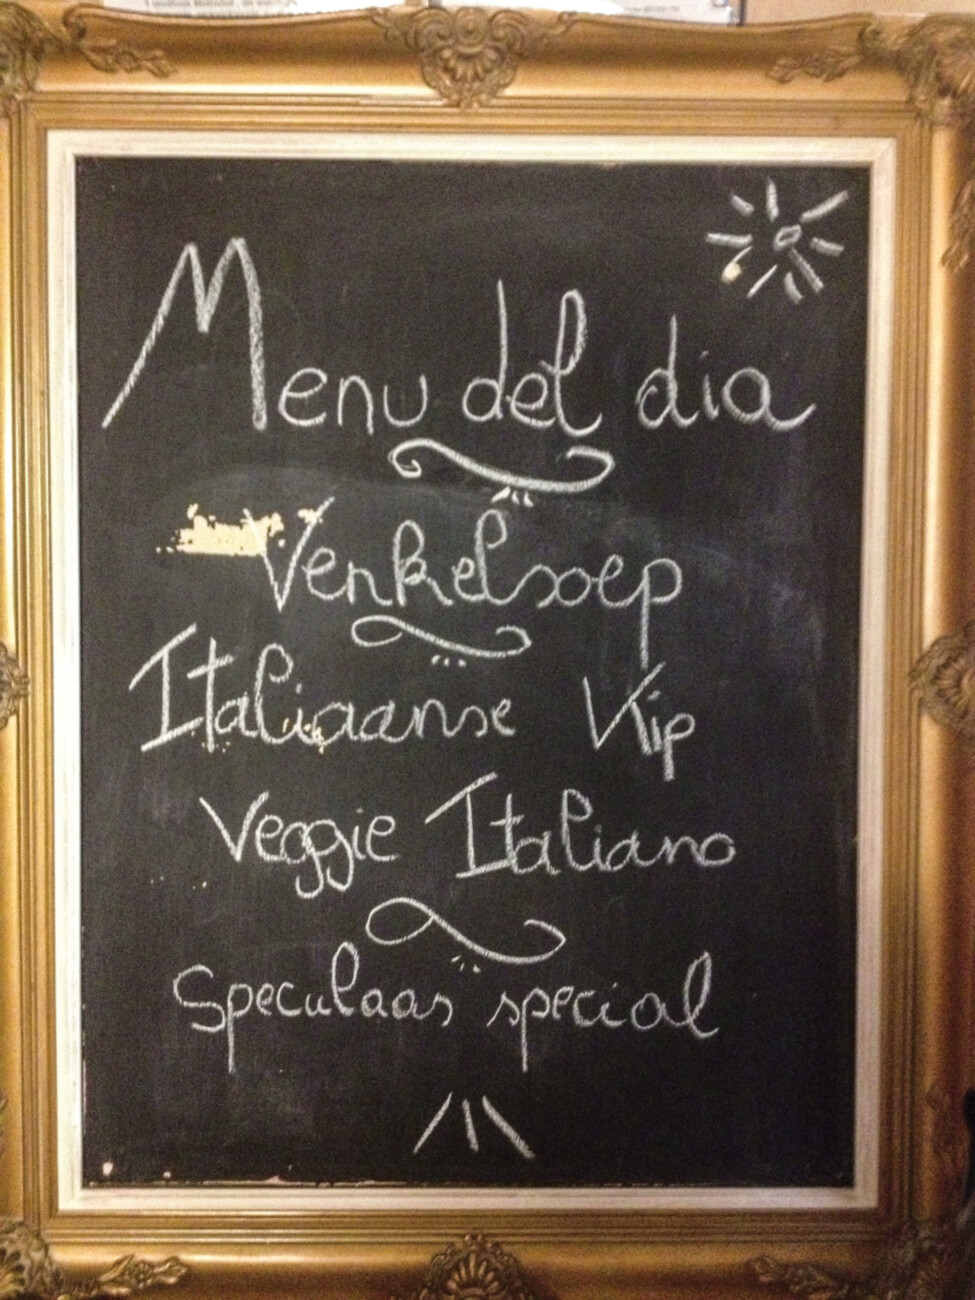 Menu del dia
Venkelsoep
Italiaanse Kip
Veggie Italiano
Speculaas special